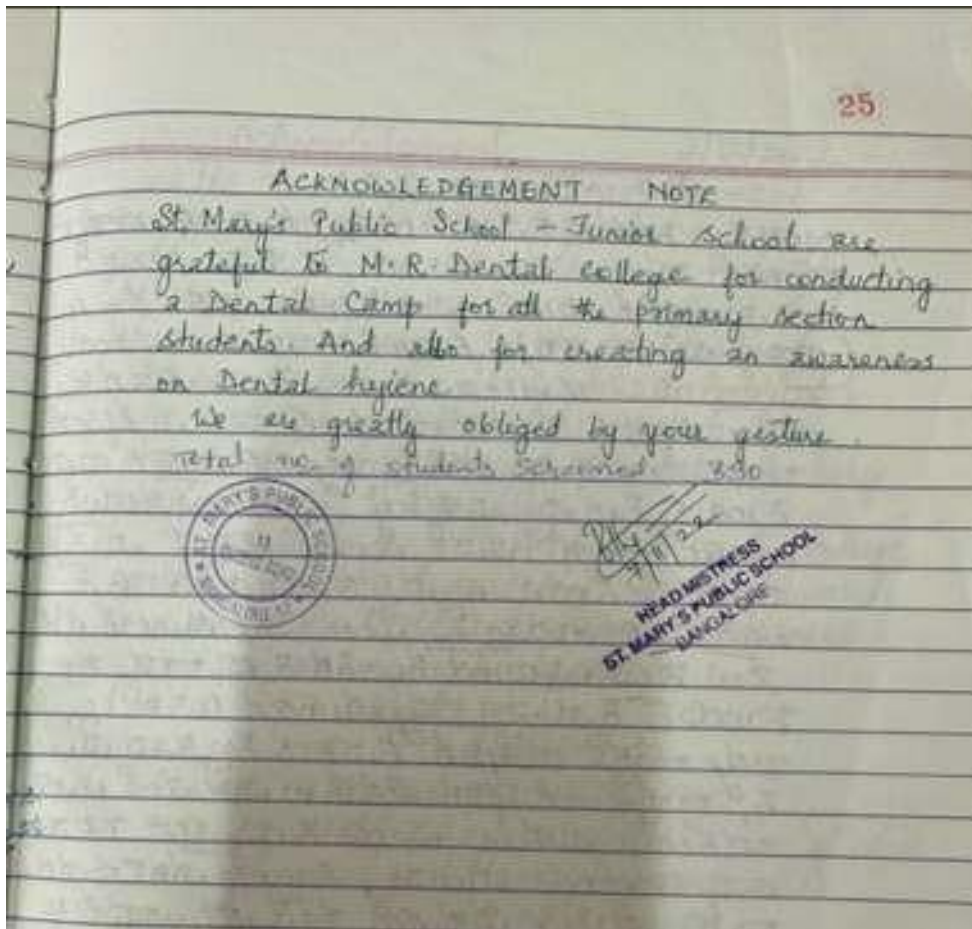 25
ACKNOWLEDGEMENT NOTE
St. Mary's Public School - Junior school are
grateful to M.R. Dental college for conducting
a Dental Camp for all the primary section
students. And also for creating an awareness
on Dental hygiene
We are greatly obliged by your gesture.
Total no. of students screened
ST. MARY'S PUBLIC SCHOOL
/11/22
HEAD MISTRESS
ST. MARY'S PUBLIC SCHOOL
BANGALORE